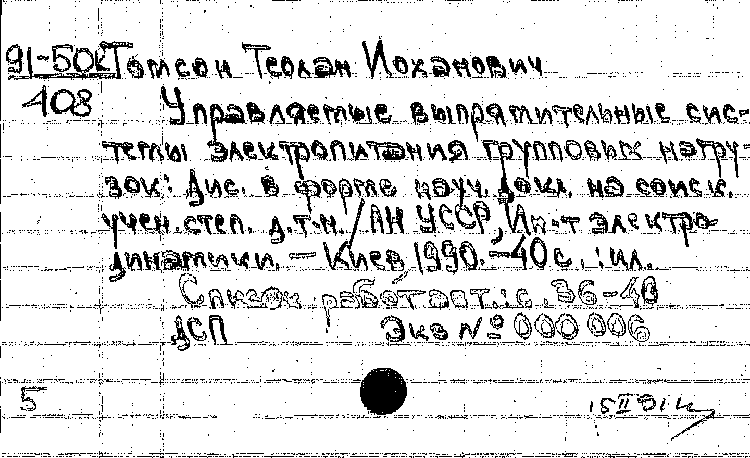 91-50к Томсон Теолан Йоханович
408 Управляемые выпрямительные сис-
темы электропитания групповых нагру-
зок: Дис. в форме науч. докл. на соиск.
учен. степ. д.т.н. / АН УССР, Ин-т электро-
динамики. — Киев, 1990. — 40 с. : ил.
Список работ авт.: с. 36-40
ДСП Экз № 000 006
5 15 II 91